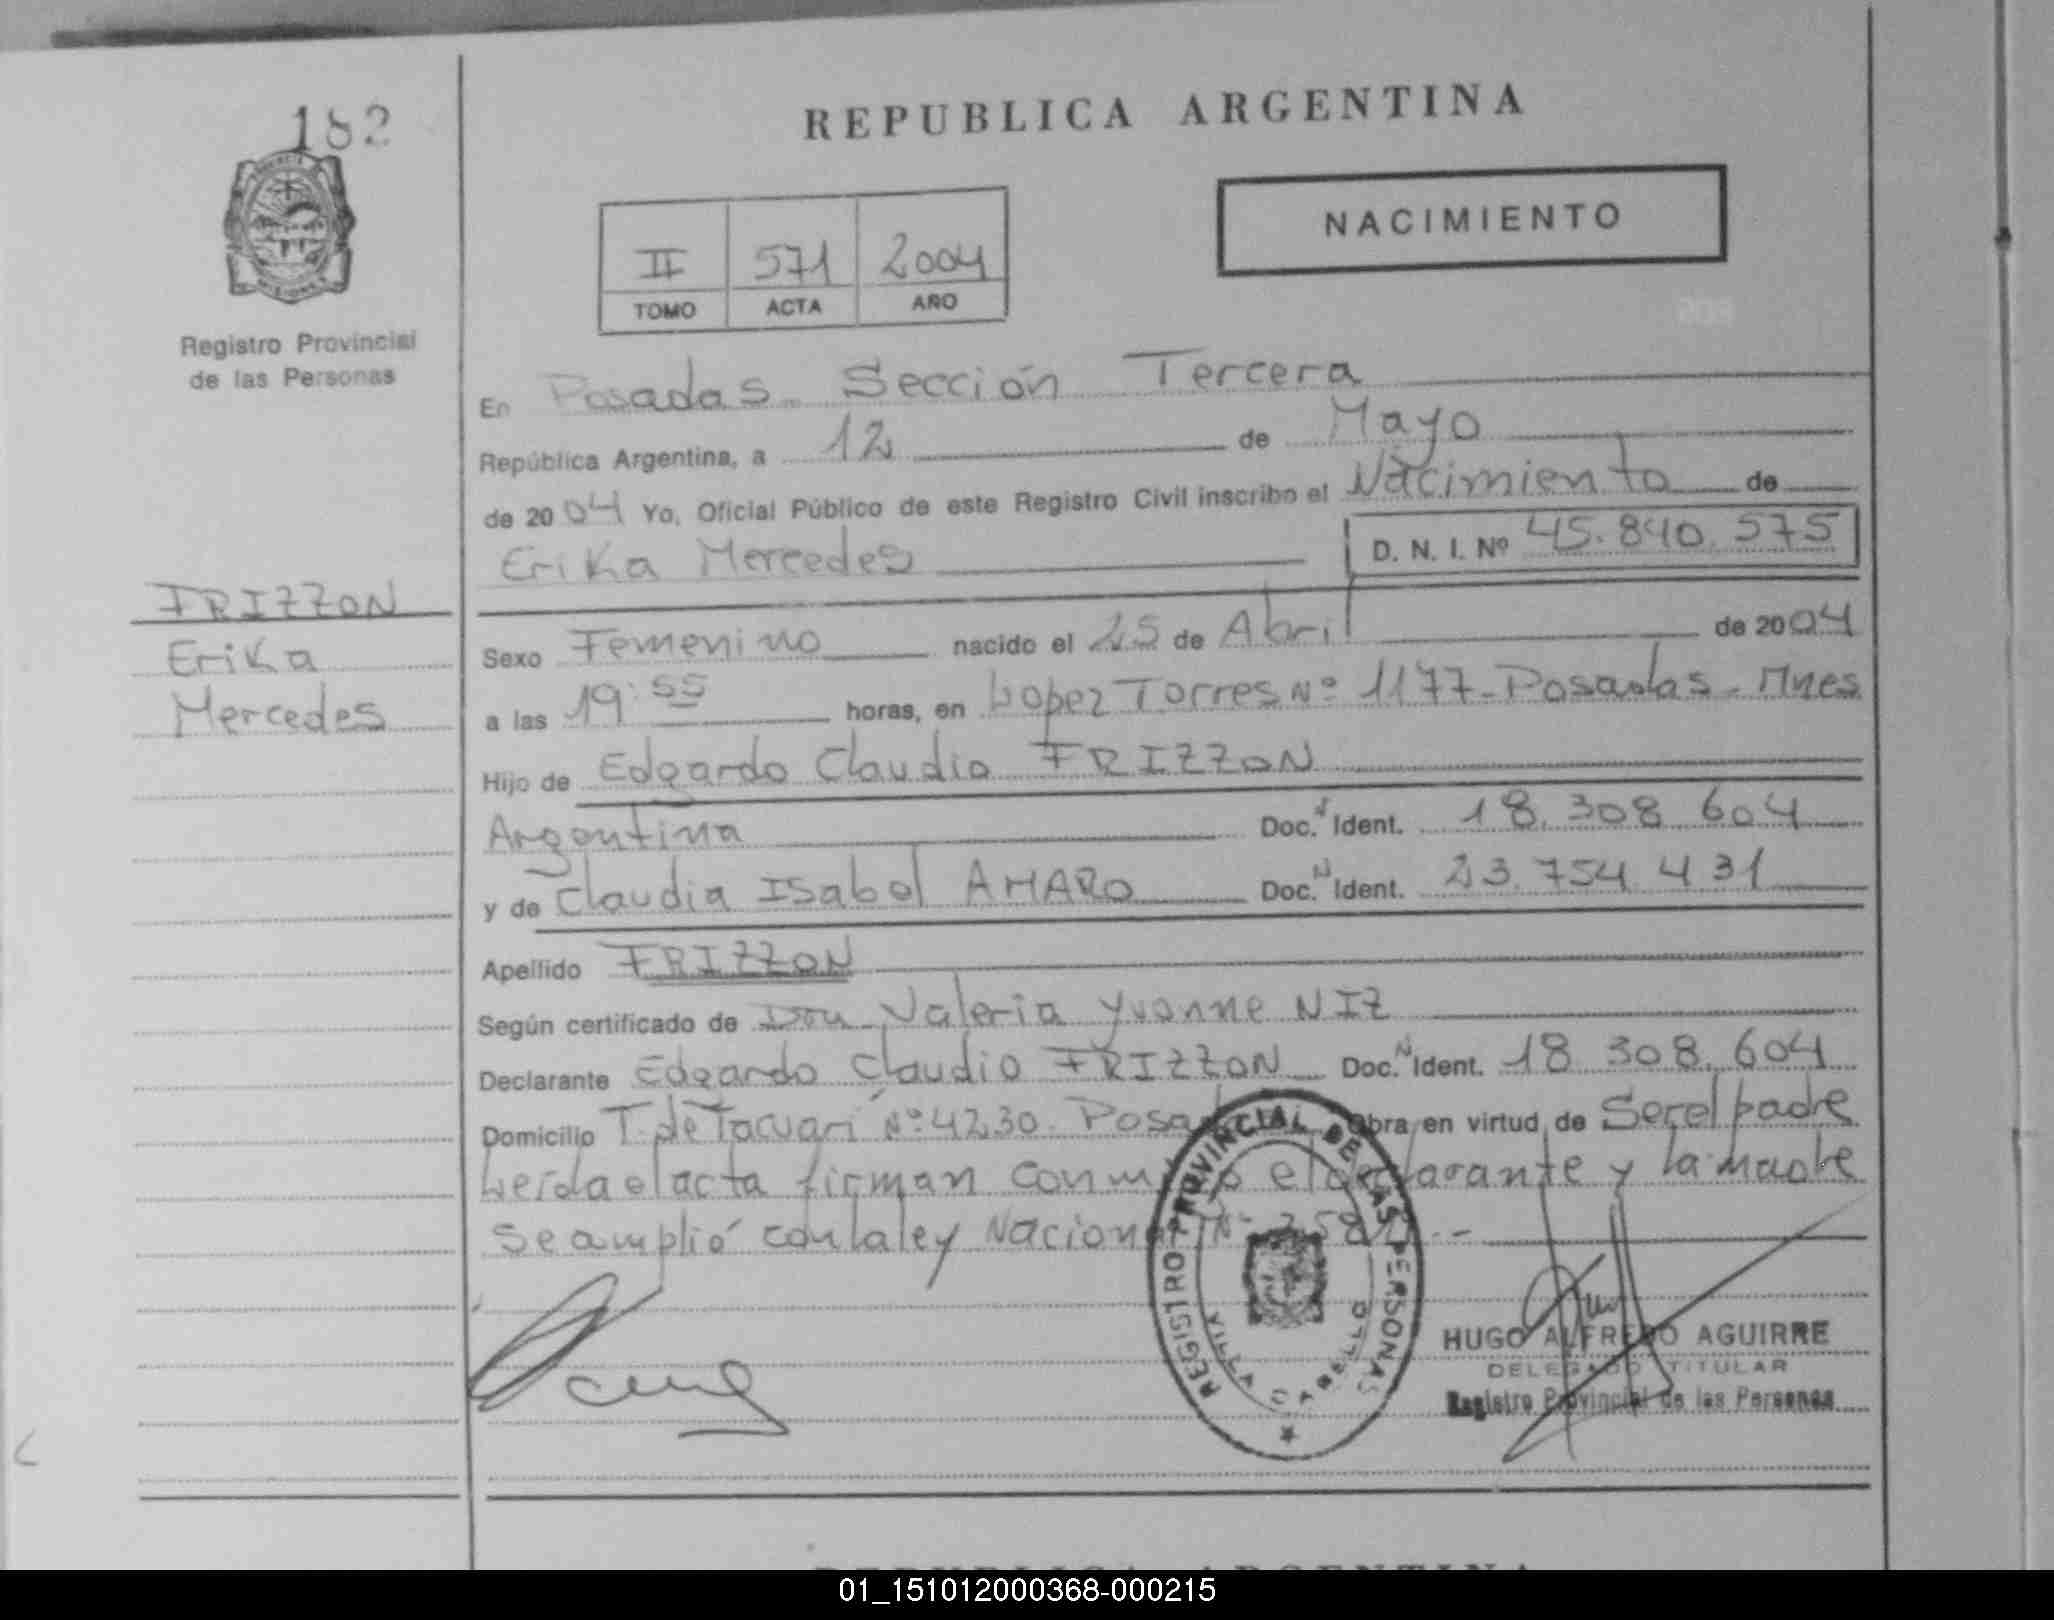 182
REPUBLICA ARGENTINA
NACIMIENTO
II 571 2004
TOMO ACTA AÑO
Registro Provincial
de las Personas
En Posadas Sección Tercera
República Argentina, a 12 de Mayo
de 2004 Yo, Oficial Público de este Registro Civil inscribo el Nacimiento de
Erika Mercedes D. N. I. Nº 45.840.575
FRIZZON
Erika
Mercedes
Sexo Femenino nacido el 25 de Abril de 2004
a las 19:55 horas, en Lopez Torres Nº 1177 - Posadas - Mnes
Hijo de Edgardo Claudio FRIZZON
Argentina Doc. Ident. 18.308.604
y de Claudia Isabel AMARO Doc. N Ident. 23.754.431
Apellido FRIZZON
Según certificado de Valeria Yvonne NIZ
Declarante Edgardo Claudio FRIZZON Doc. N Ident. 18.308.604
Domicilio T. de Tacuari Nº 4230. Obra en virtud de Ser el padre
Leida el acta firman el declarante y la madre
Se amplió con la ley
REGISTRO PROVINCIAL DE LAS PERSONAS
VILLA CABELLO
HUGO ALFREDO AGUIRRE
DELEGADO TITULAR
Registro Provincial de las Personas
REPUBLICA ARGENTINA
01_151012000368-000215